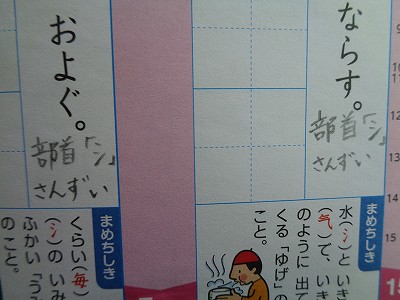 ならす。
部首「氵」
さんずい
まめちしき
水(氵)といき
(気)で、いき
のように出て
くる「ゆげ」の
こと。
およぐ。
部首「氵」
さんずい
まめちしき
くらい(毎)
(氵)のいみ
ふかい「う
のこと。
9
10
11
12
13
14
15